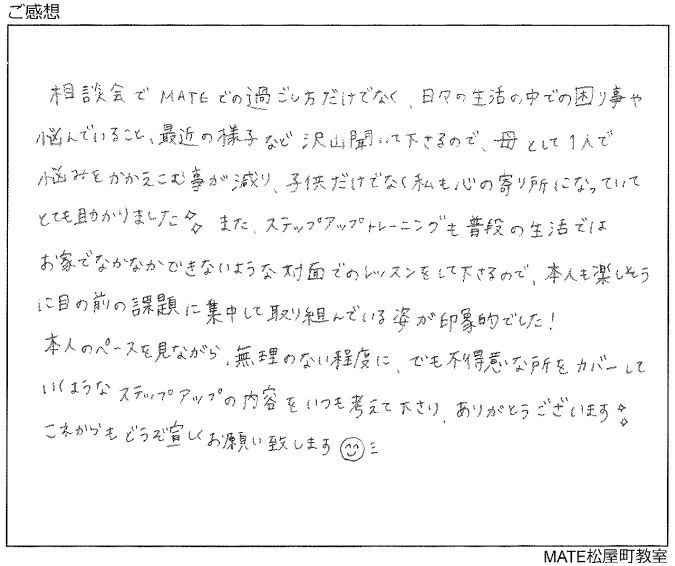 ご感想
相談会でMATEでの過ごし方だけでなく、日々の生活の中での困り事や
悩んでいること、最近の様子など沢山聞いて下さるので、母として1人で
悩みをかかえこむ事が減り、子供だけでなく私も心の寄り所になっていて
とても助かりました✨ また、ステップアップトレーニングも普段の生活では
お家でなかなかできないような対面でのレッスンをして下さるので、本人も楽しそう
に目の前の課題に集中して取り組んでいる姿が印象的でした!
本人のペースを見ながら、無理のない程度に、でも不得意な所をカバーして
いくようなステップアップの内容をいつも考えて下さり、ありがとうございます✨
これからもどうぞ宜しくお願い致します😊
MATE松屋町教室